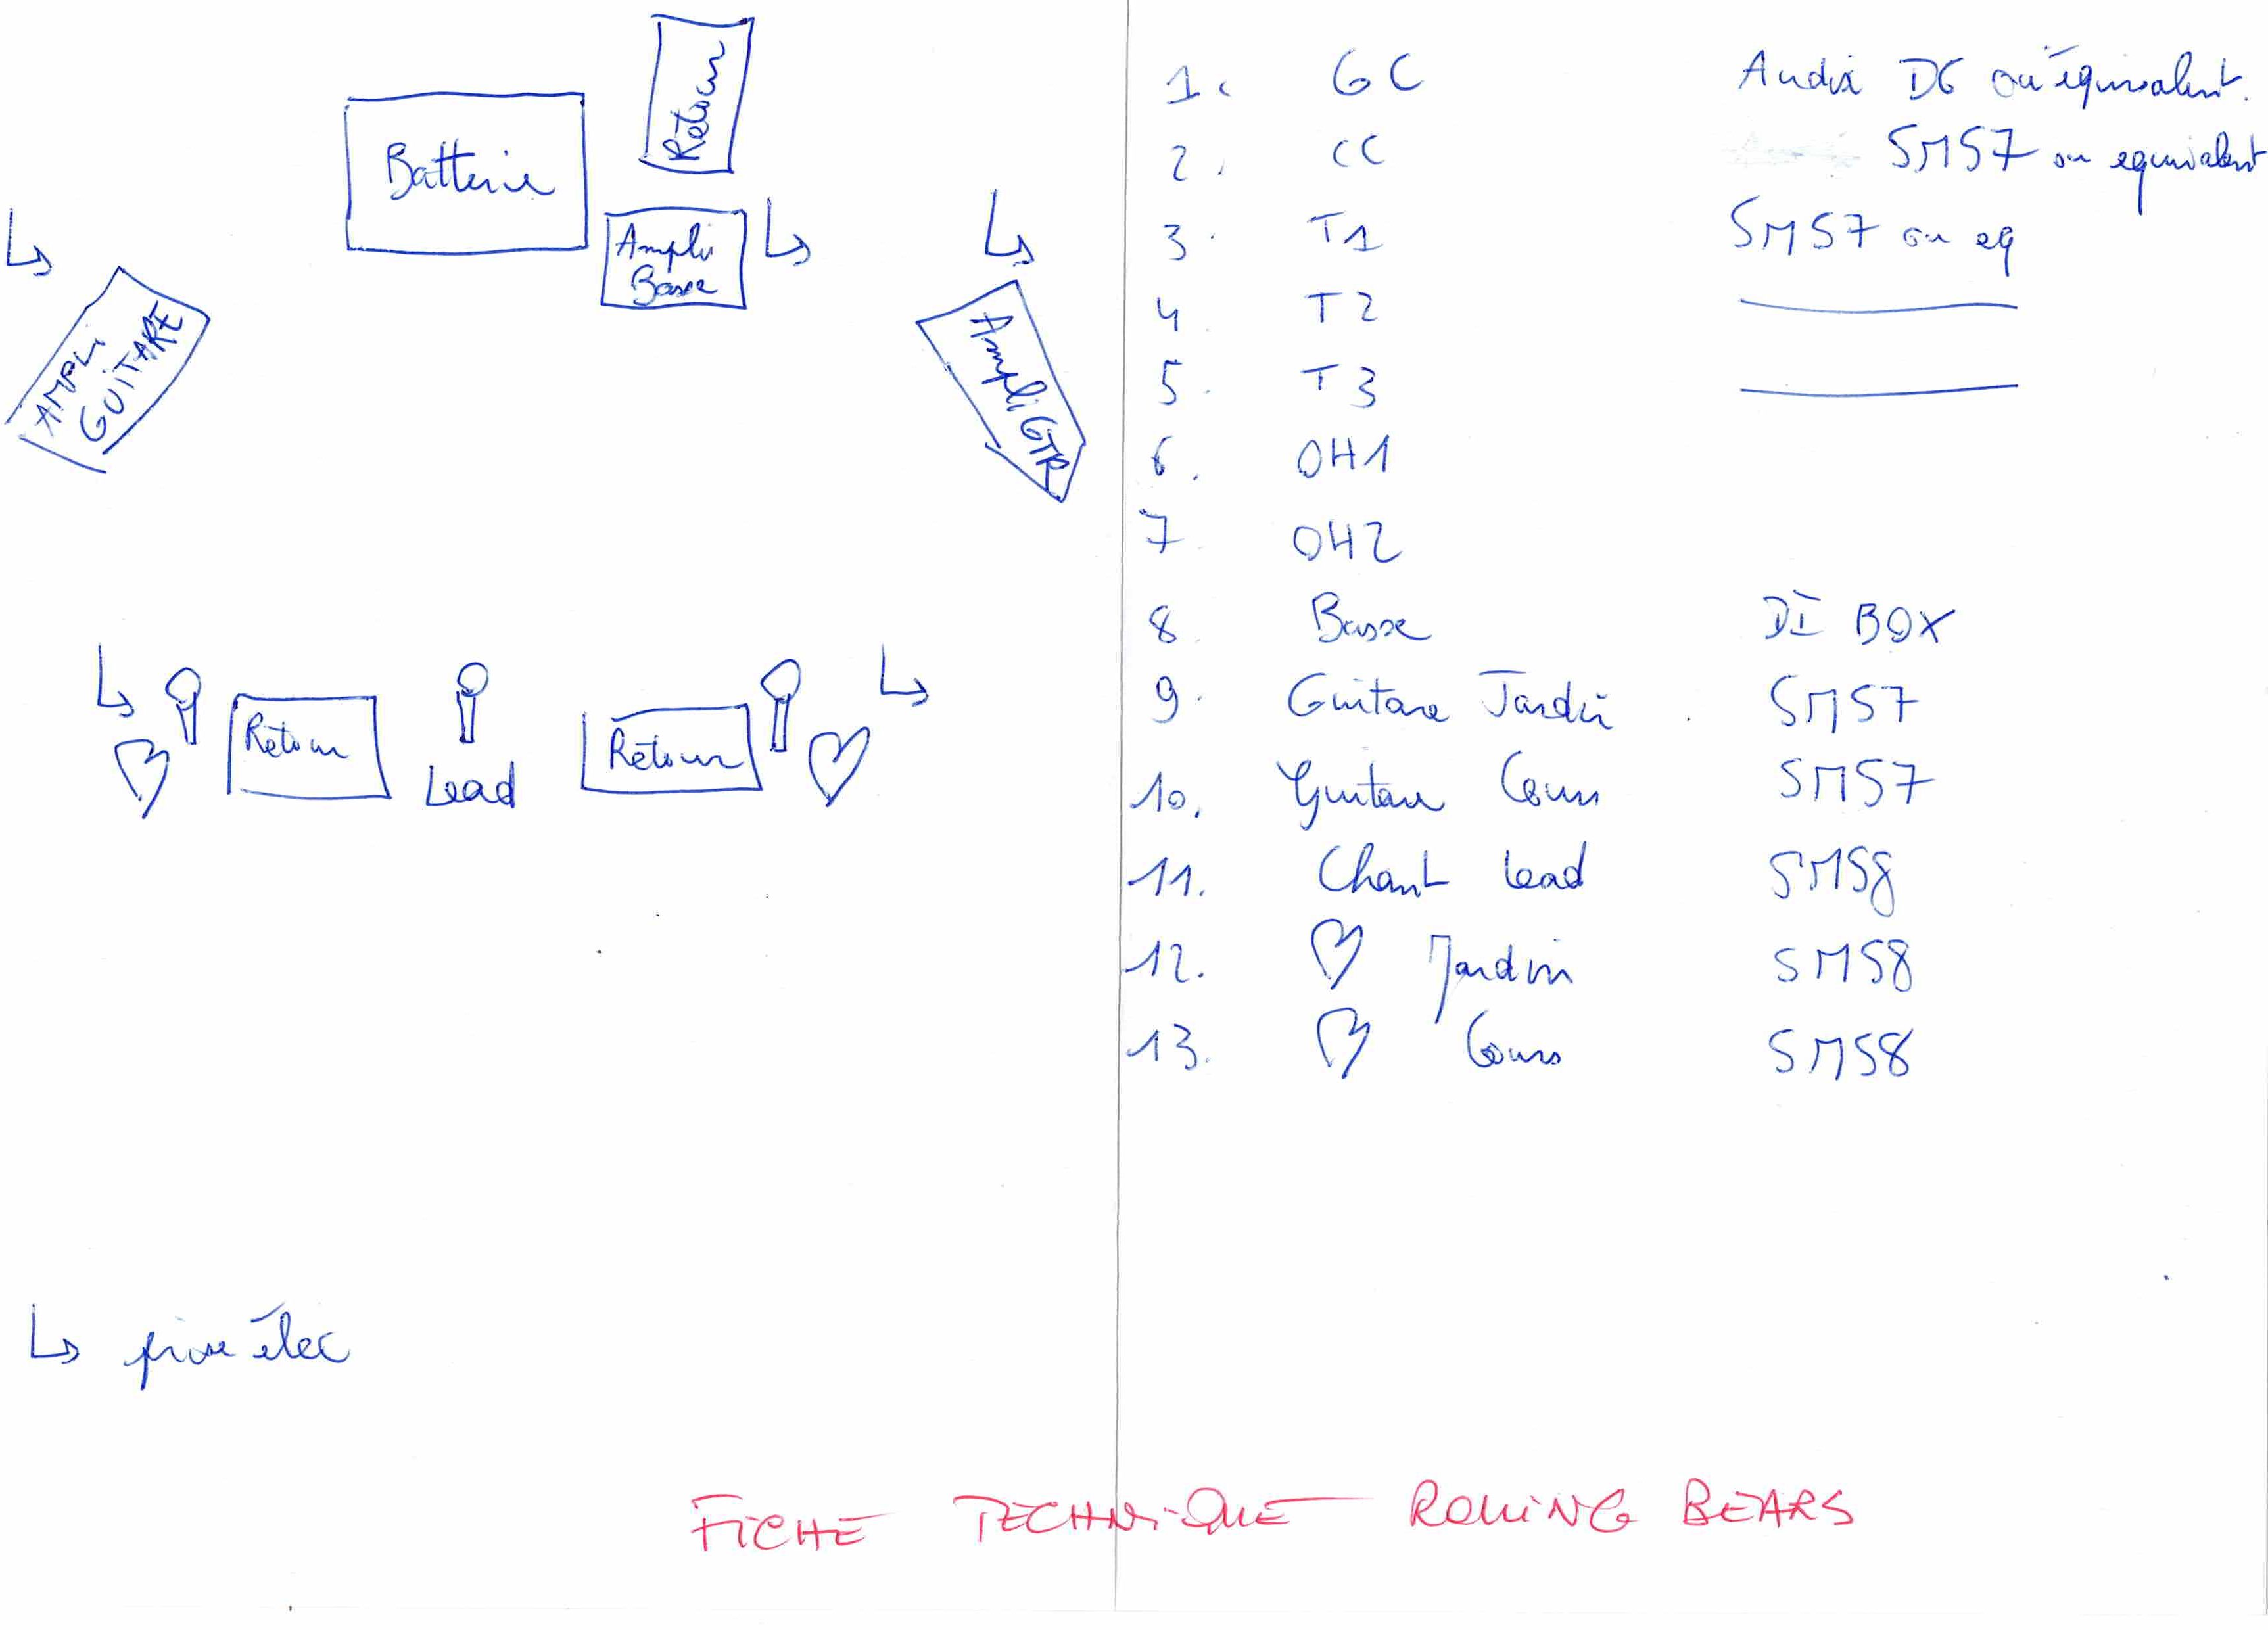 Retour
Batterie
Ampli
Basse
AMPLI
GUITARE
Ampli GTR
Retour
Lead
Retour
↳ prise élec
1. GC Audix D6 ou équivalent.
2. CC SM57 ou equivalent
3. T1 SM57 ou eq
4. T2
5. T3
6. OH1
7. OH2
8. Basse DI BOX
9. Guitare Jardin SM57
10. Guitare Cour SM57
11. Chant lead SM58
12. ♡ Jardin SM58
13. ♡ Cour SM58
FICHE TECHNIQUE ROLLING BEARS